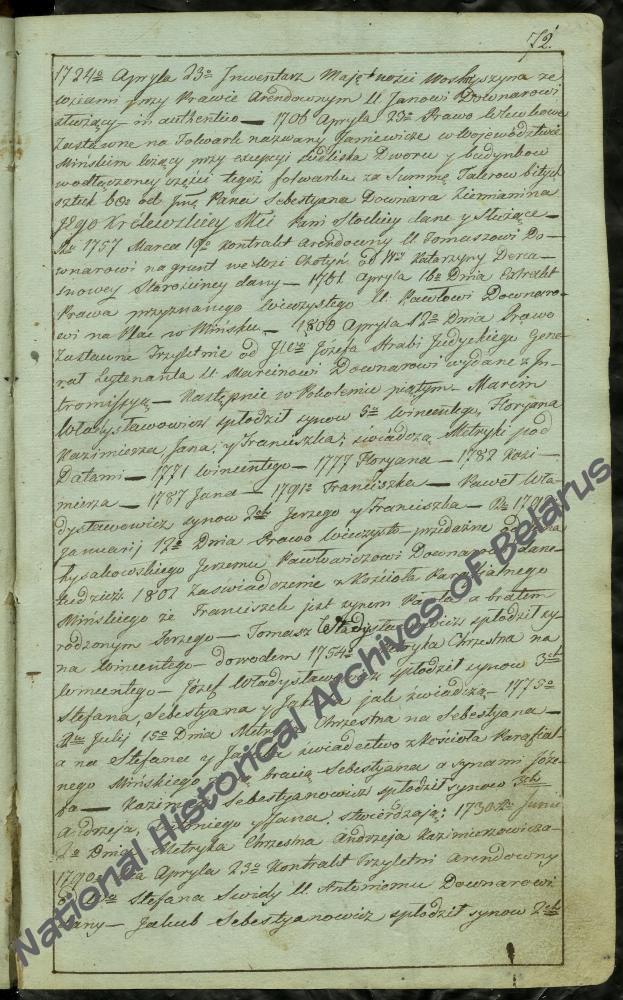 72.
1724o Apryla 23o Inwentarz Majętności Moskyszyna ze
wsiami przy Prawie Arendownym U. Janowi Downarowi
służący in authentico — 1706 Apryla 23o Prawo
Zastawne na Folwark nazwany Janiewicze w Województwie
Mińskim leżący przy excepcyi Dworu y budynkow
w odłączoney części tegoż folwarku za Summę Talerow bitych
sztuk 600 od Jmę Pana Sebestyana Downara Ziemianina
Jego Królewskiey Mci Pani Stockiey dane y służące —
1757 Marca 19o Kontrakt Arendowny U. Tomaszowi Do-
wnarowi na grunt we Wsi Chotyń od Wey Katarzyny
Starościney dany — 1761 Apryla 16o Dnia Extrakt
Prawa przyznanego Wieczystego U. Pawłowi Downaro-
wi na Plac w Mińsku — 1800 Apryla 12o Dnia Prawo
Zastawne Trzyletnie od Józefa Hrabi Judyckiego Gene-
rał Leytenanta U. Marcinowi Downarowi wydane z In-
tromissyą — Następnie w Pokoleniu piątym. Marcin
Władysławowicz spłodził synow 5o Wincentego, Floryana
Kazimierza, Jana, y Franciszka; świadczą Metryki pod
Datami — 1771 Wincentego — 1777 Floryana — 1782 Kazi-
mierza — 1787 Jana — 1791o Franciszka — Paweł Wła-
dysławowicz synow 2ch Jerzego y Franciszka —
Januarij 12o Dnia Prawo Wieczysto-przedażne od Jana
Łysakowskiego Jerzemu Pawłowiczowi Downarowi dane
1802 Zaświadczenie z Kościoła Parafialnego
Mińskiego że Franciszek jest synem Pawła a bratem
rodzonym Jerzego — Tomasz Władysławowicz spłodził sy-
na Wincentego dowodem 1754o Metryka Chrzestna na
Wincentego — Józef Władysławowicz spłodził synow 3ch
Stefana, Sebestyana y Jakuba jak świadczą — 1775o
Julij 15o Dnia Metryka Chrzestna na Sebestyana —
a na Stefana y Jakuba świadectwo z Kościoła Parafial-
nego Mińskiego bracią Sebestyana a synami Józe-
fa — Kazimierz Sebestyanowicz spłodził synow 3ch
Andrzeja, Antoniego y Jana, stwierdzają; 1730 Junii
2o Dnia Metryka Chrzestna Andrzeja Kazimierzowicza
1790 Apryla 23o Kontrakt Trzyletni Arendowny
od Stefana Swidy U. Antoniemu Downarowi
dany — Jakub Sebestyanowicz spłodził synow 2ch
National Historical Archives of Belarus